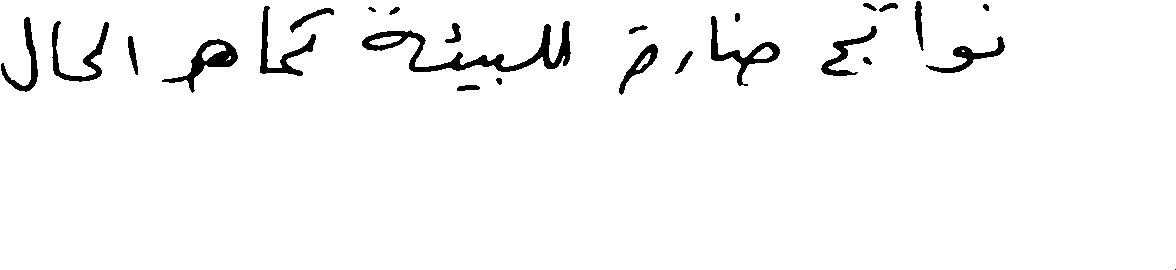 نواتج ضارة للبيئة كما هو الحال